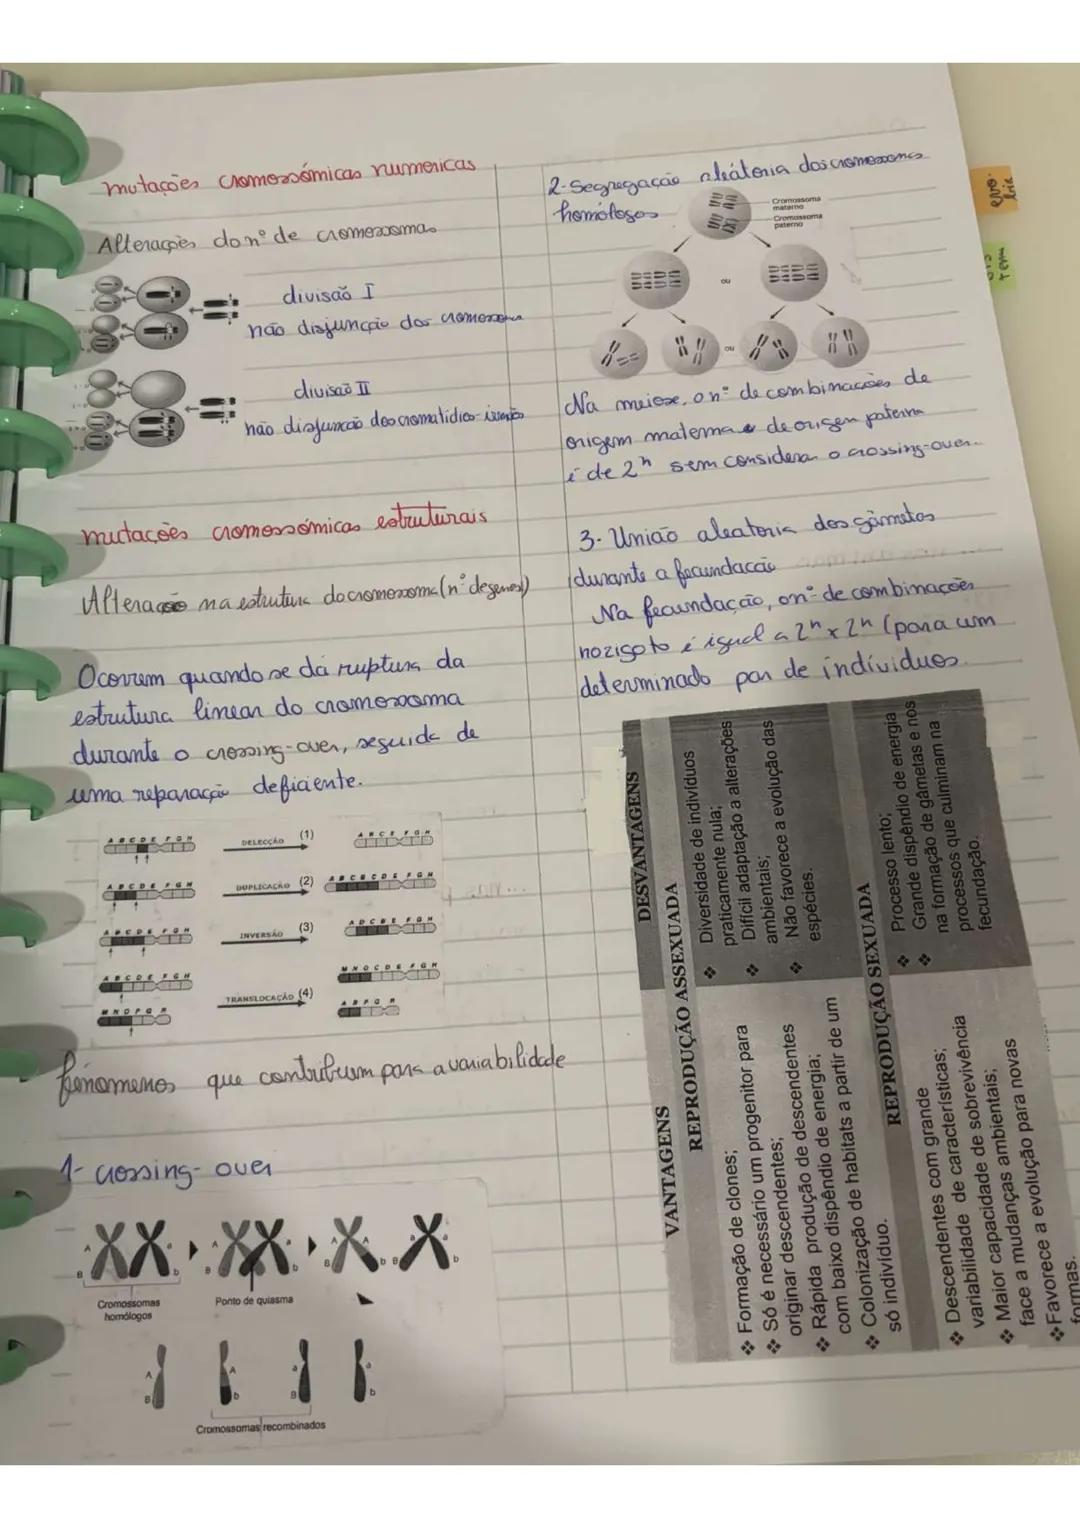 mutações cromossómicas numericas
Alterações do nº de cromossomas
divisão I
não disjunção dos cromossomas
divisão II
não disjunção dos cromatídios-irmãos
mutações cromossómicas estruturais
Alteração na estrutura do cromossoma (nº de genes)
Ocorrem quando se dá ruptura da
estrutura linear do cromossoma
durante o crossing-over, seguida de
uma reparação deficiente.
A B C D E F G H
DELECÇÃO (1)
A B C E F G H
A B C D E F G H
DUPLICAÇÃO (2)
A B C B C D E F G H
A B C D E F G H
INVERSÃO (3)
A D C B E F G H
A B C D E F G H
M N O P Q R
TRANSLOCAÇÃO (4)
M N O C D E F G H
A B P Q R
fenomenos que contribuem para a variabilidade
1- crossing-over
A
B
a
b
Cromossomas
homólogos
Ponto de quiasma
Cromossomas recombinados
2-Segregação aleátoria dos cromossomas
homólogos
Cromossoma
materno
Cromossoma
paterno
ou
ou
Na meiose, o nº de combinacões de
origem materna e de origem paterna
é de 2ⁿ sem considerar o crossing-over.
3- União aleatoria dos gâmetas
durante a fecundacão
Na fecundação, o nº de combinações
no zigoto é igual a 2ⁿ x 2ⁿ (para um
determinado par de indíviduos.
VANTAGENS
DESVANTAGENS
REPRODUÇÃO ASSEXUADA
❖ Formação de clones;
❖ Só é necessário um progenitor para
originar descendentes;
❖ Rápida produção de descendentes
com baixo dispêndio de energia;
❖ Colonização de habitats a partir de um
só indivíduo.
❖ Diversidade de indivíduos
praticamente nula;
❖ Difícil adaptação a alterações
ambientais;
❖ Não favorece a evolução das
espécies.
REPRODUÇÃO SEXUADA
❖ Descendentes com grande
variabilidade de características;
❖ Maior capacidade de sobrevivência
face a mudanças ambientais;
❖ Favorece a evolução para novas
formas.
❖ Processo lento;
❖ Grande dispêndio de energia
na formação de gâmetas e nos
processos que culminam na
fecundação.